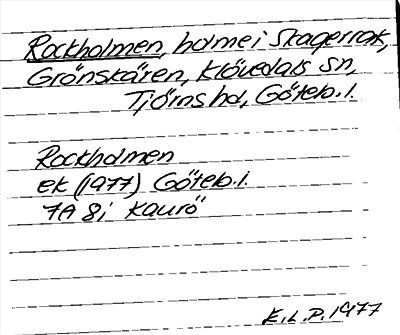 Rockholmen, holme i Skagerrak,
Grönskären, Klövedals sn,
Tjörns hd, Göteb. l.
Rockholmen
ek (1977) Göteb. l.
7A 8i Kaurö
E.L.P. 1977